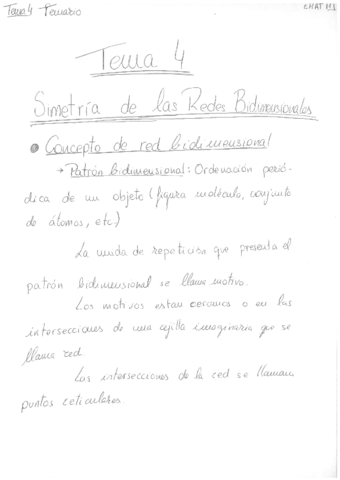 Tema 4 Temario
Tema 4
Simetría de las Redes Bidimensionales
• Concepto de red bidimensional
→ Patrón bidimensional: Ordenación perió-
dica de un objeto (figura molécula, conjunto
de átomos, etc)
La unidad de repetición que presenta el
patrón bidimensional se llama motivo.
Los motivos están cercanos o en las
intersecciones de una rejilla imaginaria que se
llama red
Las intersecciones de la red se llaman
puntos reticulares